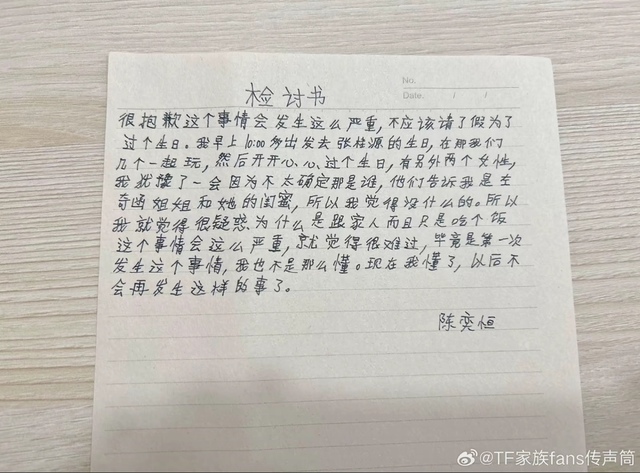 No.
Date. / /
检讨书
很抱歉这个事情会发生这么严重,不应该请了假为了
过个生日。我早上10:00多出发去张桂源的生日,在那我们
几个一起玩,然后开开心心过个生日,有另外两个女性,
我犹攥了一会因为不太确定那是谁,他们告诉我是左
奇函姐姐和她的闺蜜,所以我觉得没什么的。所以
我就觉得很疑惑为什么是跟家人而且只是吃个饭
这个事情会这么严重,就觉得很难过,毕竟是第一次
发生这个事情,我也不是那么懂。现在我懂了,以后不
会再发生这样的事了。
陈奕恒
@TF家族fans传声筒